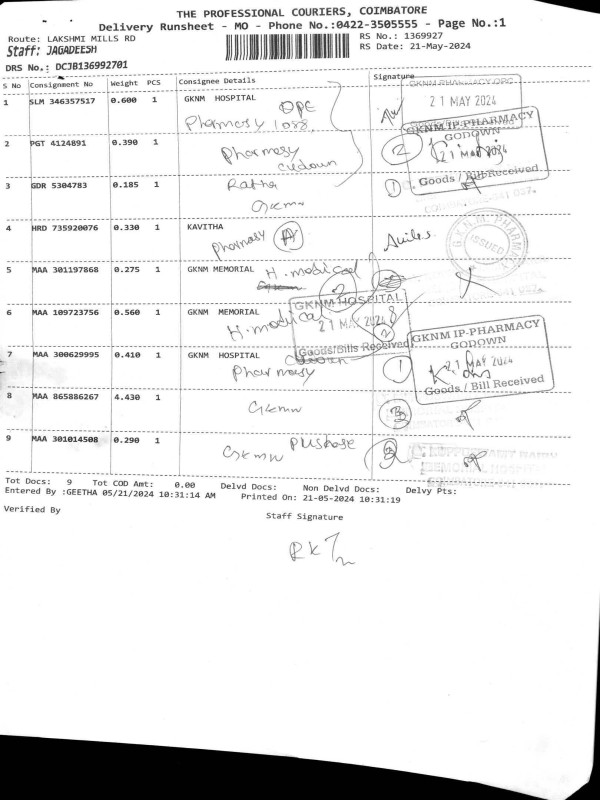 THE PROFESSIONAL COURIERS, COIMBATORE
Delivery Runsheet - MO - Phone No.:0422-3505555 - Page No.:1
Route: LAKSHMI MILLS RD
RS No.: 1369927
Staff: JAGADEESH
RS Date: 21-May-2024
DRS No.: DCJB136992701
S No Consignment No Weight PCS Consignee Details Signature
1 SLM 346357517 0.600 1 GKNM HOSPITAL
OPC
Pharmacy
21 MAY 2024
2 PGT 4124891 0.390 1
Pharmacy
2
GKNM IP-PHARMACY
GODOWN
21 MAY 2024
Goods / Bill Received
3 GDR 5304783 0.185 1 Ratha
1
Gkmw
4 HRD 735920076 0.330 1 KAVITHA
Pharmacy
G.K.N.M. PHARMACY
ISSUED
5 MAA 301197868 0.275 1 GKNM MEMORIAL H. medical
2
GKNM HOSPITAL
21 MAY 2024
Goods/Bills Received
6 MAA 109723756 0.560 1 GKNM MEMORIAL
H. medical
2
GKNM IP-PHARMACY
GODOWN
21 MAY 2024
Goods / Bill Received
7 MAA 300629995 0.410 1 GKNM HOSPITAL
Pharmacy
1
8 MAA 865886267 4.430 1
Gkmw
3
9 MAA 301014508 0.290 1
Gkmw
Tot Docs: 9 Tot COD Amt: 0.00 Delvd Docs: Non Delvd Docs: Delvy Pts:
Entered By :GEETHA 05/21/2024 10:31:14 AM Printed On: 21-05-2024 10:31:19
Verified By
Staff Signature